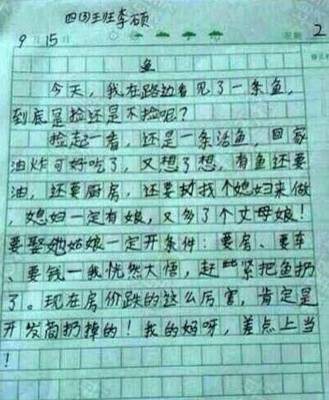 四(4)班李硕
9月15日 星期 2
鱼
今天，我在路边看见了一条鱼，
到底是捡还是不捡呢？
捡起一看，还是一条活鱼，回家
油炸可好吃了，又想了想，有鱼还要
油，还要厨房，还要找个媳妇来做
，媳妇一定有娘，又多了个丈母娘！
要娶她姑娘一定开条件：要房、要车
、要钱—我恍然大悟，赶紧把鱼扔
了。现在房价跌的这么厉害，肯定是
开发商扔掉的！我的妈呀，差点上当
！